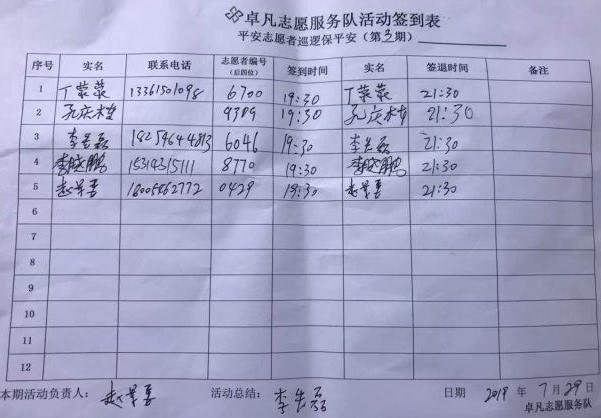 卓凡志愿服务队活动签到表
平安志愿者巡逻保平安（第3期）
序号 实名 联系电话 志愿者编号（后四位） 签到时间 实名 签退时间 备注
1 丁蒙蒙 13361501098 6700 19:30 丁蒙蒙 21:30
2 孔庆 9389 19:30 孔庆 21:30
3 李 6046 19:30 李 21:30
4 李晓鹏 15314315111 8770 19:30 李晓鹏 21:30
5 赵 0429 19:30 赵 21:30
6
7
8
9
10
11
12
本期活动负责人：赵 活动总结：李 日期 2019 年 7 月 29 日
卓凡志愿服务队